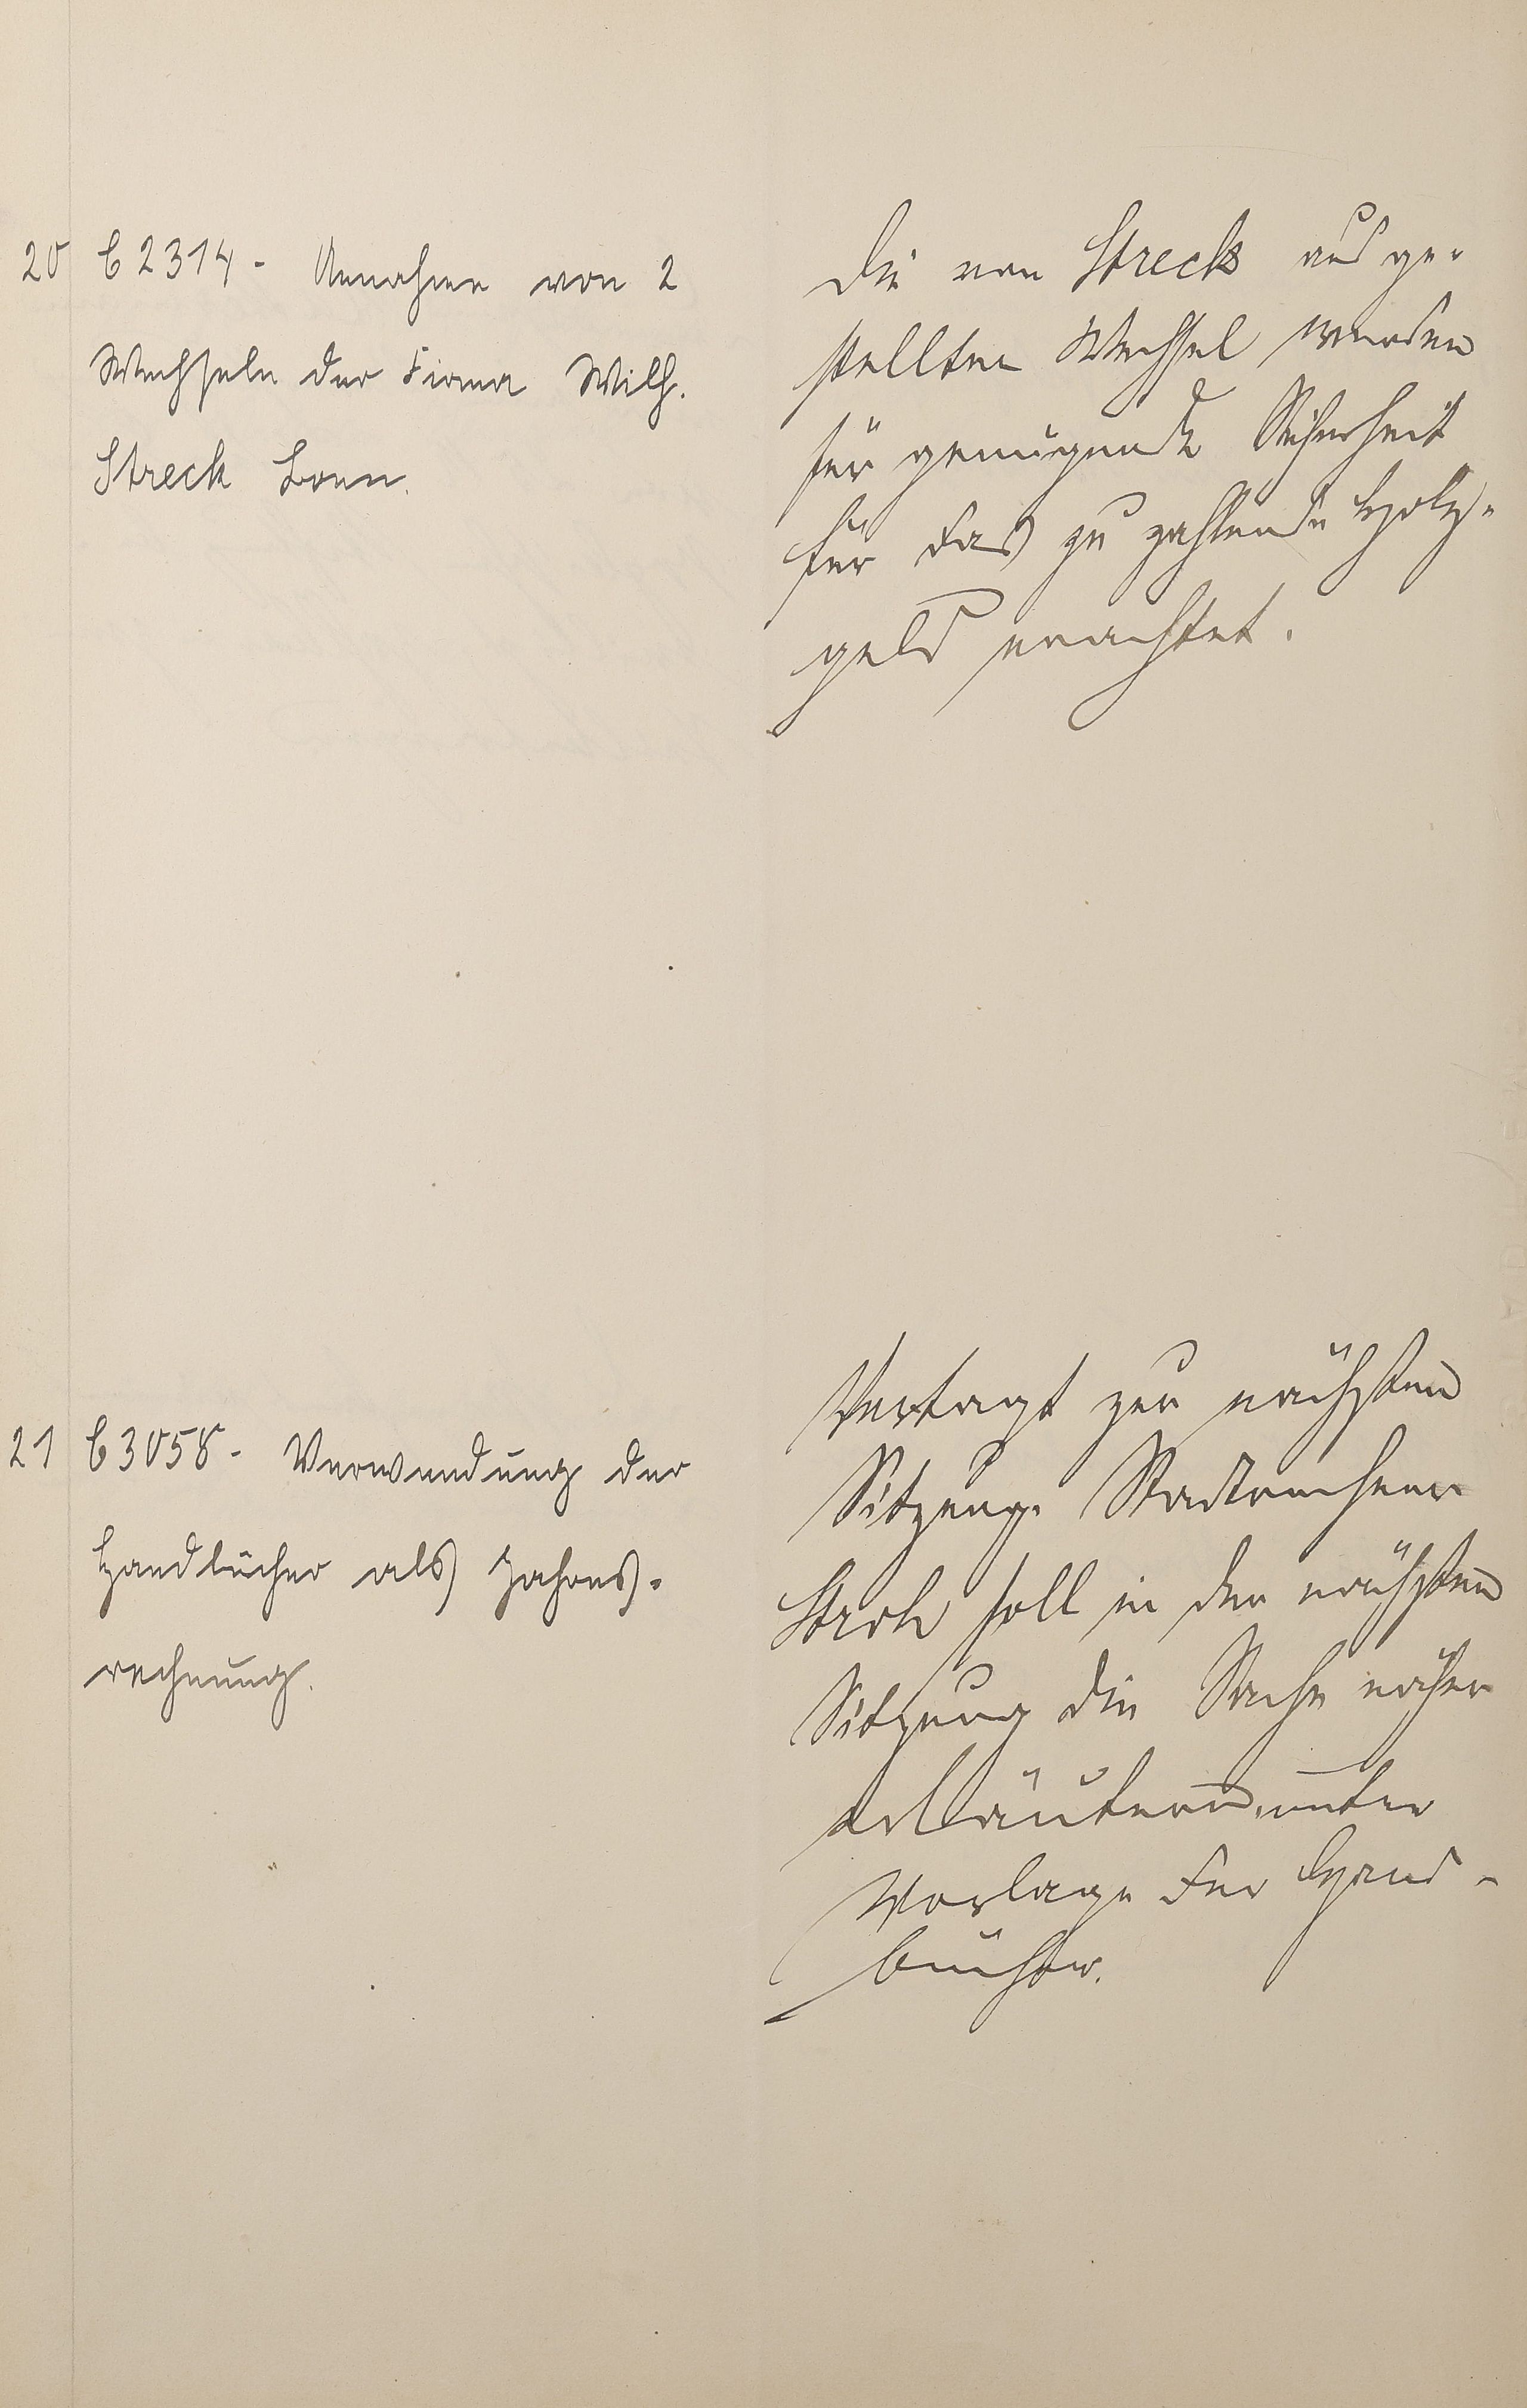 20 C 2314 - Annahme von 2
Wechseln der Firma Wilh.
Streck Bonn.
Die von Streck ausge-
stellten Wechsel werden
für genügende Sicherheit
für das zu zahlende Holz-
geld erachtet.
21 C 3058 - Verwendung der
Handbücher als Jahres-
rechnung.
Vertagt zur nächsten
Sitzung. Stadtrechner
soll in der nächsten
Sitzung die Sache näher
erläutern unter
Vorlage der Hand-
bücher.